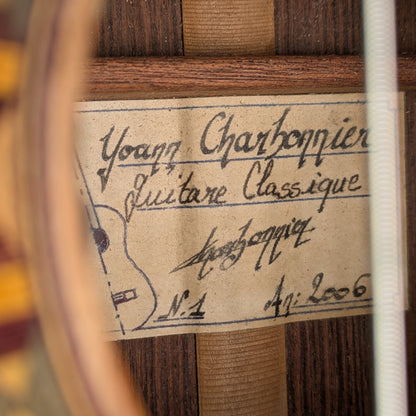 Yoann Charbonnier
Guitare Classique
Charbonnier
N.1 An: 2006